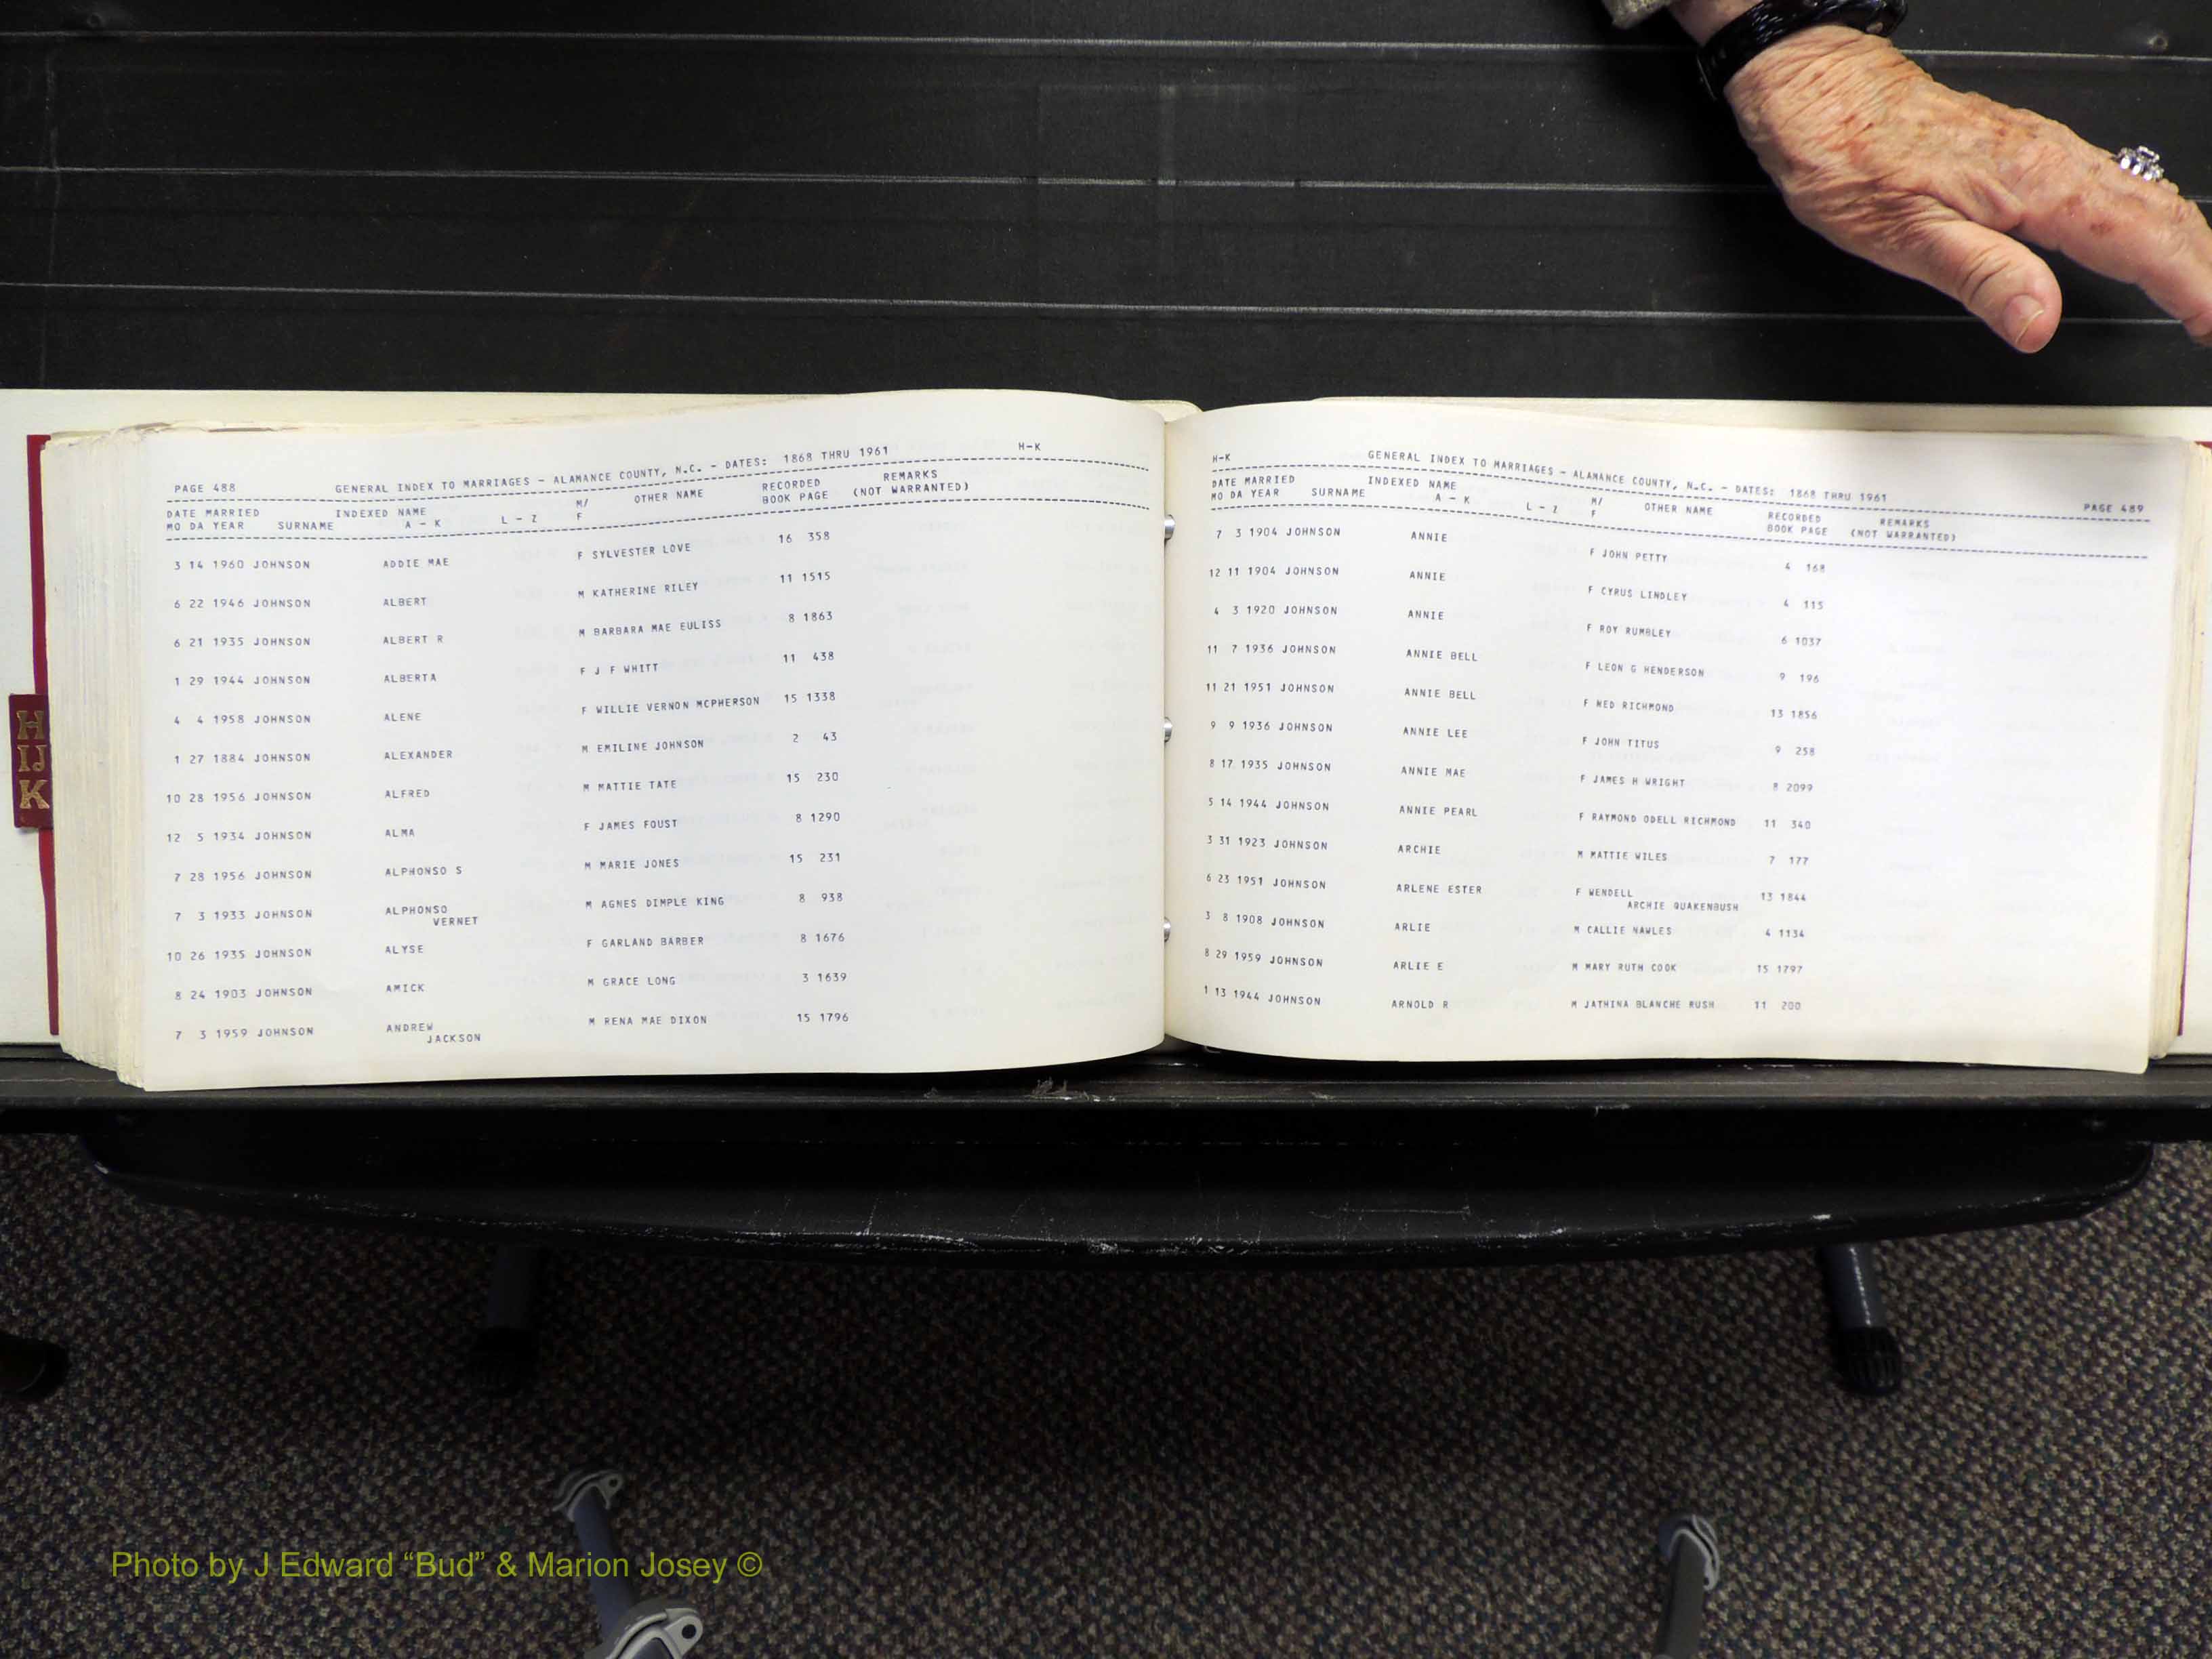 PAGE 488 GENERAL INDEX TO MARRIAGES - ALAMANCE COUNTY, N.C. - DATES: 1868 THRU 1961 H-K
DATE MARRIED INDEXED NAME M/ OTHER NAME RECORDED REMARKS
MO DA YEAR SURNAME A - K L - Z F BOOK PAGE (NOT WARRANTED)
3 14 1960 JOHNSON ADDIE MAE F SYLVESTER LOVE 16 358
6 22 1946 JOHNSON ALBERT M KATHERINE RILEY 11 1515
6 21 1935 JOHNSON ALBERT R M BARBARA MAE EULISS 8 1863
1 29 1944 JOHNSON ALBERTA F J F WHITT 11 438
4 4 1958 JOHNSON ALENE F WILLIE VERNON MCPHERSON 15 1338
1 27 1884 JOHNSON ALEXANDER M EMILINE JOHNSON 2 43
10 28 1956 JOHNSON ALFRED M MATTIE TATE 15 230
12 5 1934 JOHNSON ALMA F JAMES FOUST 8 1290
7 28 1956 JOHNSON ALPHONSO S M MARIE JONES 15 231
7 3 1933 JOHNSON ALPHONSO M AGNES DIMPLE KING 8 938
VERNET
10 26 1935 JOHNSON ALYSE F GARLAND BARBER 8 1676
8 24 1903 JOHNSON AMICK M GRACE LONG 3 1639
7 3 1959 JOHNSON ANDREW M RENA MAE DIXON 15 1796
JACKSON
H-K GENERAL INDEX TO MARRIAGES - ALAMANCE COUNTY, N.C. - DATES: 1868 THRU 1961 PAGE 489
DATE MARRIED INDEXED NAME M/ OTHER NAME RECORDED REMARKS
MO DA YEAR SURNAME A - K L - Z F BOOK PAGE (NOT WARRANTED)
7 3 1904 JOHNSON ANNIE F JOHN PETTY 4 168
12 11 1904 JOHNSON ANNIE F CYRUS LINDLEY 4 115
4 3 1920 JOHNSON ANNIE F ROY RUMBLEY 6 1037
11 7 1936 JOHNSON ANNIE BELL F LEON G HENDERSON 9 196
11 21 1951 JOHNSON ANNIE BELL F NED RICHMOND 13 1856
9 9 1936 JOHNSON ANNIE LEE F JOHN TITUS 9 258
8 17 1935 JOHNSON ANNIE MAE F JAMES H WRIGHT 8 2099
5 14 1944 JOHNSON ANNIE PEARL F RAYMOND ODELL RICHMOND 11 340
3 31 1923 JOHNSON ARCHIE M MATTIE WILES 7 177
6 23 1951 JOHNSON ARLENE ESTER F WENDELL 13 1844
ARCHIE QUAKENBUSH
3 8 1908 JOHNSON ARLIE M CALLIE NAWLES 4 1134
8 29 1959 JOHNSON ARLIE E M MARY RUTH COOK 15 1797
1 13 1944 JOHNSON ARNOLD R M JATHINA BLANCHE RUSH 11 200
H
IJ
K
Photo by J Edward “Bud” & Marion Josey ©